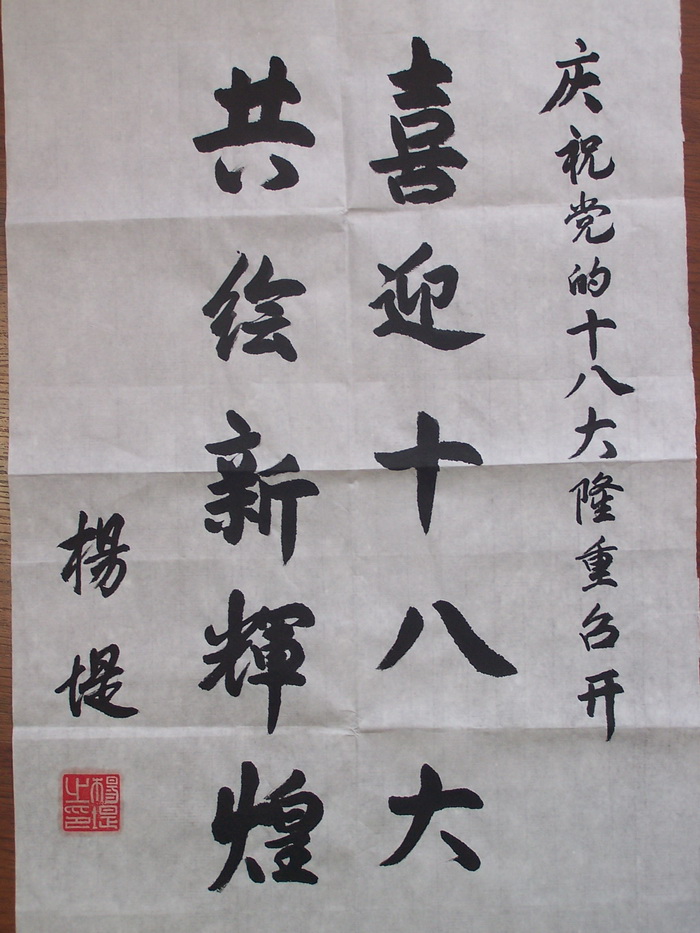 庆祝党的十八大隆重召开
喜迎十八大
共绘新輝煌
楊堤
楊堤之印